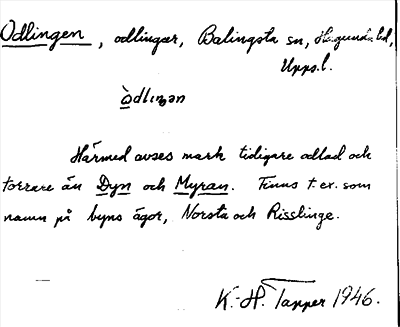 Odlingen, odlingar, Balingsta sn, Hagunda hd,
Upps.l.
òdlingan
Härmed avses mark tidigare odlad och
torrare än Dyn och Myran. Finns t.ex. som
namn på byns ägor, Norsta och Risslinge.
K.-H. Tapper 1946.